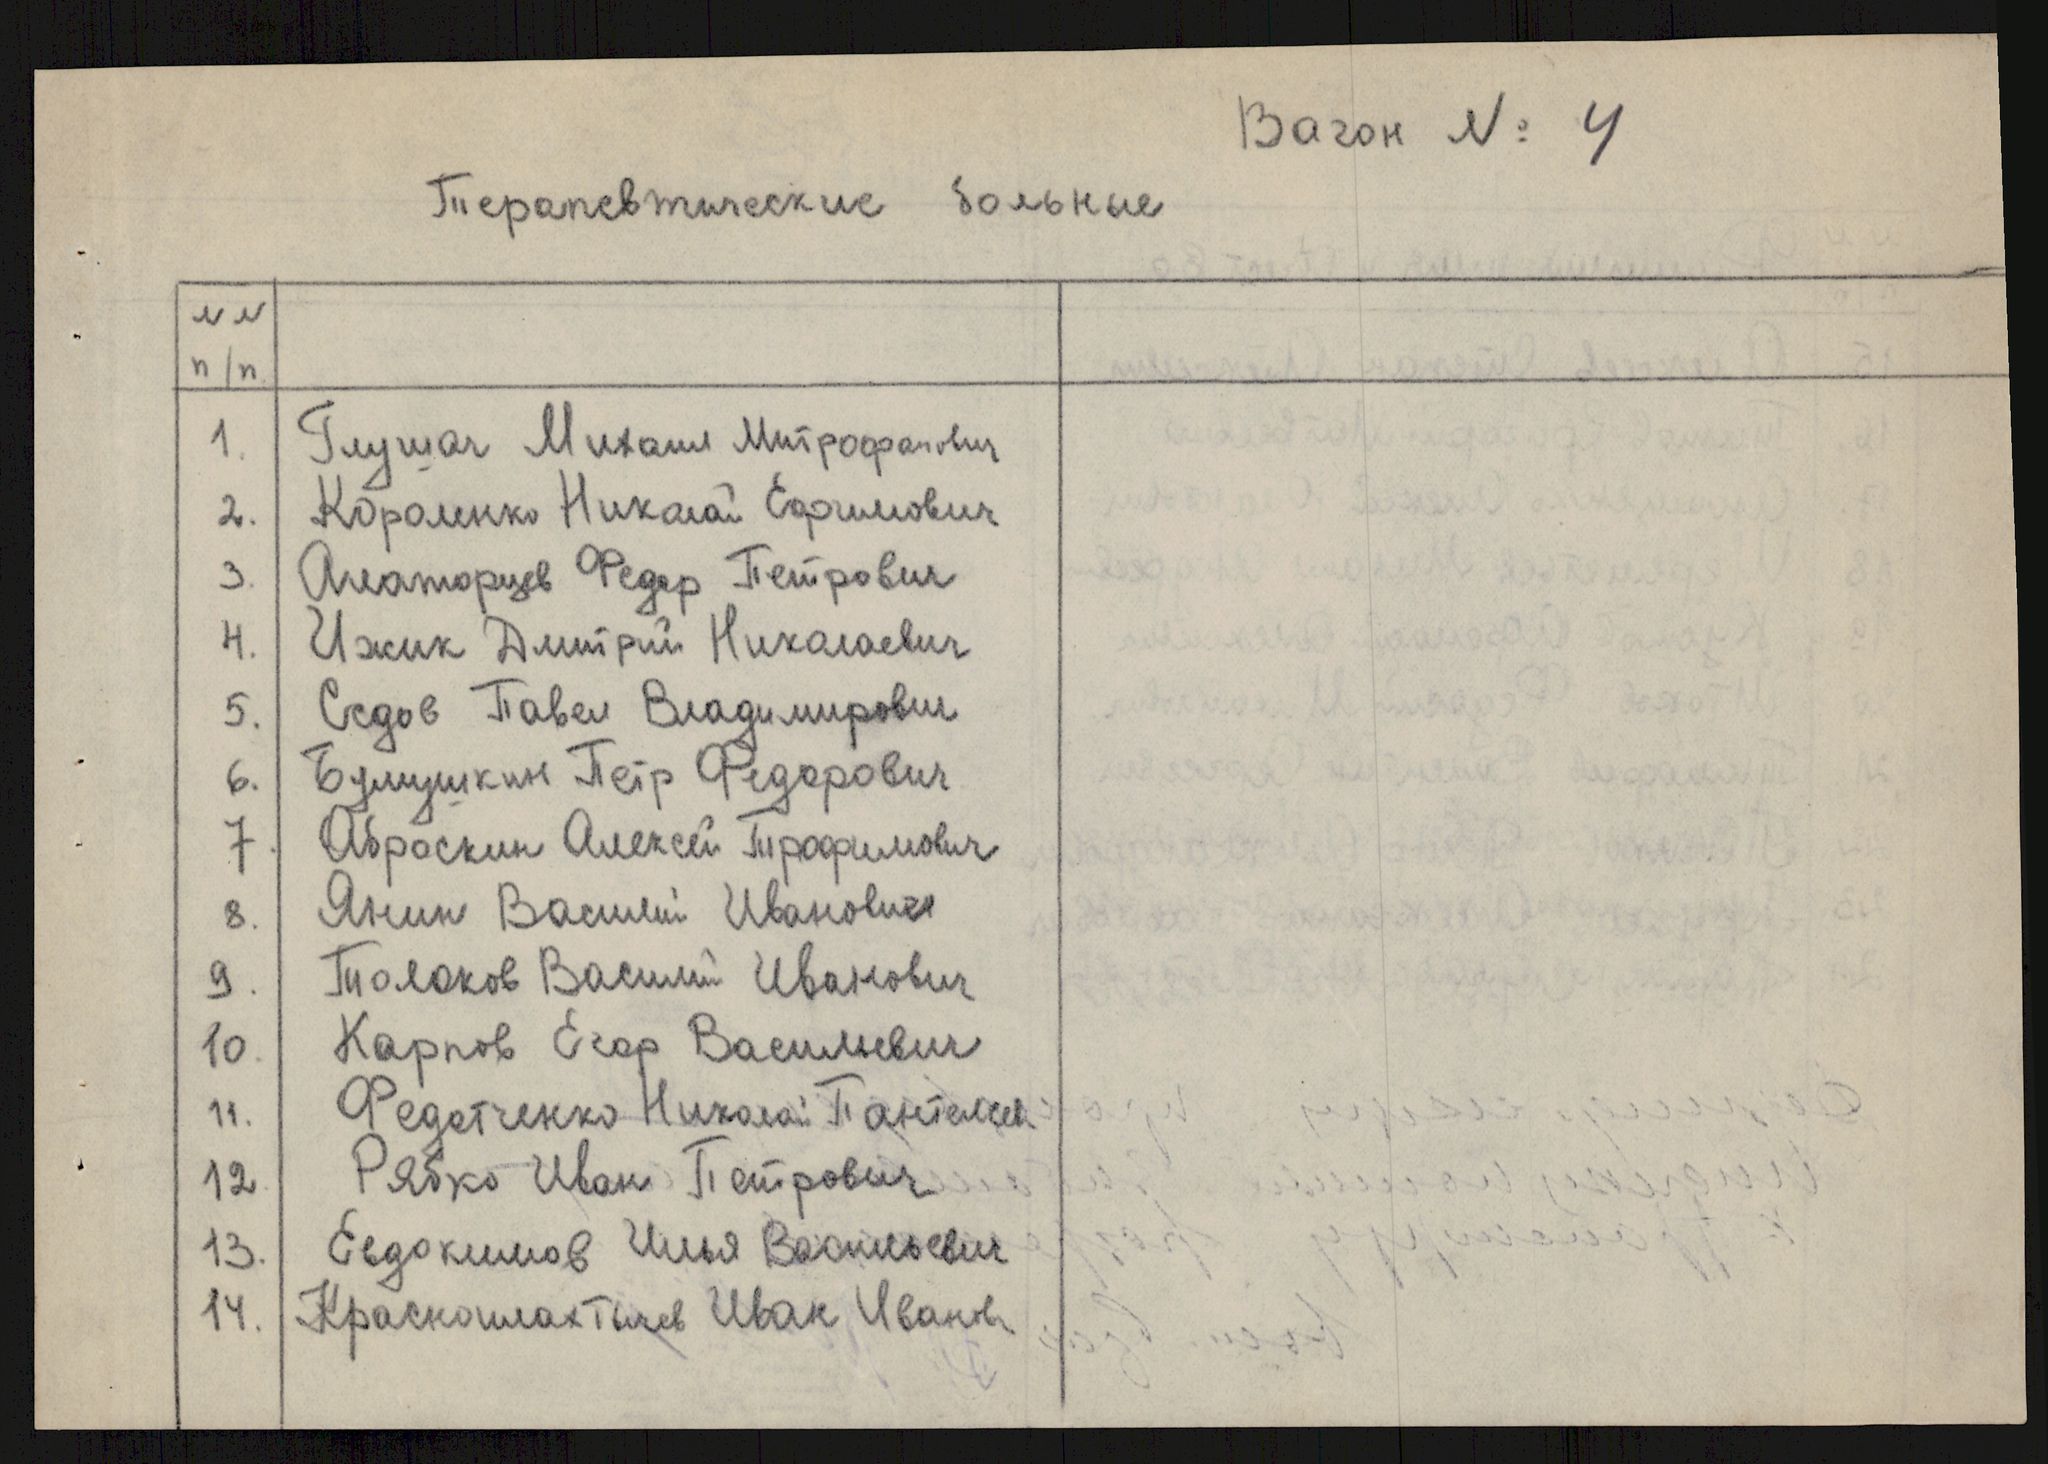 Вагон №: 4
Терапевтические больные
NN
п/п
1. Глушаг Михаил Митрофанович
2. Короленко Николай Ефимович
3. Федор Петрович
4. Ижик Дмитрий Николаевич
5. Седов Павел Владимирович
6. Булушкин Петр Федорович
7. Аброскин Алексей Трофимович
8. Янин Василий Иванович
9. Толоков Василий Иванович
10. Карпов Егор Васильевич
11. Федотченко Николай Пантелеев
12. Рябко Иван Петрович
13. Евдокимов Илья Васильевич
14. Иван Иванов